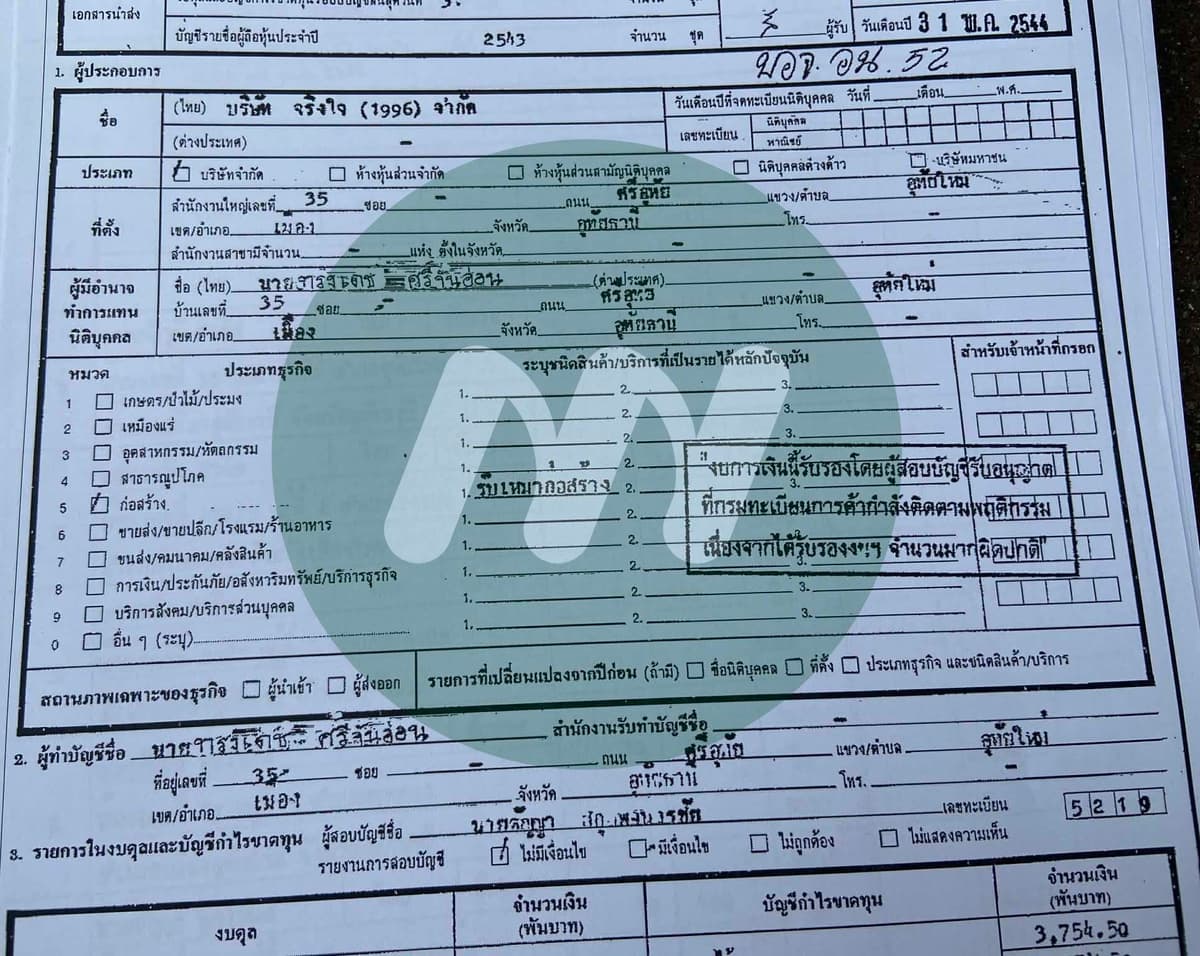 เอกสารนำส่ง
บัญชีรายชื่อผู้ถือหุ้นประจำปี 2543 จำนวน ชุด ผู้รับ วันเดือนปี 31 พ.ค. 2544
บอจ. อน. 52
1. ผู้ประกอบการ
ชื่อ (ไทย) บริษัท จริงใจ (1996) จำกัด
(ต่างประเทศ) -
วันเดือนปีที่จดทะเบียนนิติบุคคล วันที่ เดือน พ.ศ.
เลขทะเบียน นิติบุคคล
พาณิชย์
ประเภท บริษัทจำกัด ห้างหุ้นส่วนจำกัด ห้างหุ้นส่วนสามัญนิติบุคคล นิติบุคคลต่างด้าว บริษัทมหาชน
ที่ตั้ง สำนักงานใหญ่เลขที่ 35 ซอย - ถนน ศรีอุทัย แขวง/ตำบล อุทัยใหม่
เขต/อำเภอ เมือง จังหวัด อุทัยธานี โทร. -
สำนักงานสาขามีจำนวน - แห่ง ตั้งในจังหวัด -
ผู้มีอำนาจทำการแทนนิติบุคคล ชื่อ (ไทย) นาย ศรีจันอ่อน (ต่างประเทศ) -
บ้านเลขที่ 35 ซอย - ถนน แขวง/ตำบล อุทัยใหม่
เขต/อำเภอ เมือง จังหวัด อุทัยธานี โทร. -
หมวด ประเภทธุรกิจ ระบุชนิดสินค้า/บริการที่เป็นรายได้หลักปัจจุบัน สำหรับเจ้าหน้าที่กรอก
1 เกษตร/ป่าไม้/ประมง 1. 2. 3.
2 เหมืองแร่ 1. 2. 3.
3 อุตสาหกรรม/หัตถกรรม 1. 2. 3.
4 สาธารณูปโภค 1. 2.
5 ก่อสร้าง 1. รับเหมาก่อสร้าง 2. 3.
6 ขายส่ง/ขายปลีก/โรงแรม/ร้านอาหาร 1. 2.
7 ขนส่ง/คมนาคม/คลังสินค้า 1. 2.
8 การเงิน/ประกันภัย/อสังหาริมทรัพย์/บริการธุรกิจ 1. 2. 3.
9 บริการสังคม/บริการส่วนบุคคล 1. 2. 3.
0 อื่น ๆ (ระบุ) 1. 2. 3.
"งบการเงินนี้รับรองโดยผู้สอบบัญชีรับอนุญาต
ที่กรมทะเบียนการค้ากำลังติดตามพฤติกรรม
เนื่องจากได้รับรองงบฯ จำนวนมากผิดปกติ"
สถานภาพเฉพาะของธุรกิจ ผู้นำเข้า ผู้ส่งออก รายการที่เปลี่ยนแปลงจากปีก่อน (ถ้ามี) ชื่อนิติบุคคล ที่ตั้ง ประเภทธุรกิจ และชนิดสินค้า/บริการ
2. ผู้ทำบัญชีชื่อ นาย ศรีจันอ่อน สำนักงานรับทำบัญชีชื่อ -
ที่อยู่เลขที่ 35 ซอย - ถนน ศรีอุทัย แขวง/ตำบล อุทัยใหม่
เขต/อำเภอ เมือง จังหวัด อุทัยธานี โทร. -
3. รายการในงบดุลและบัญชีกำไรขาดทุน ผู้สอบบัญชีชื่อ เลขทะเบียน 5219
รายงานการสอบบัญชี ไม่มีเงื่อนไข มีเงื่อนไข ไม่ถูกต้อง ไม่แสดงความเห็น
งบดุล จำนวนเงิน (พันบาท) บัญชีกำไรขาดทุน จำนวนเงิน (พันบาท)
3,754.50